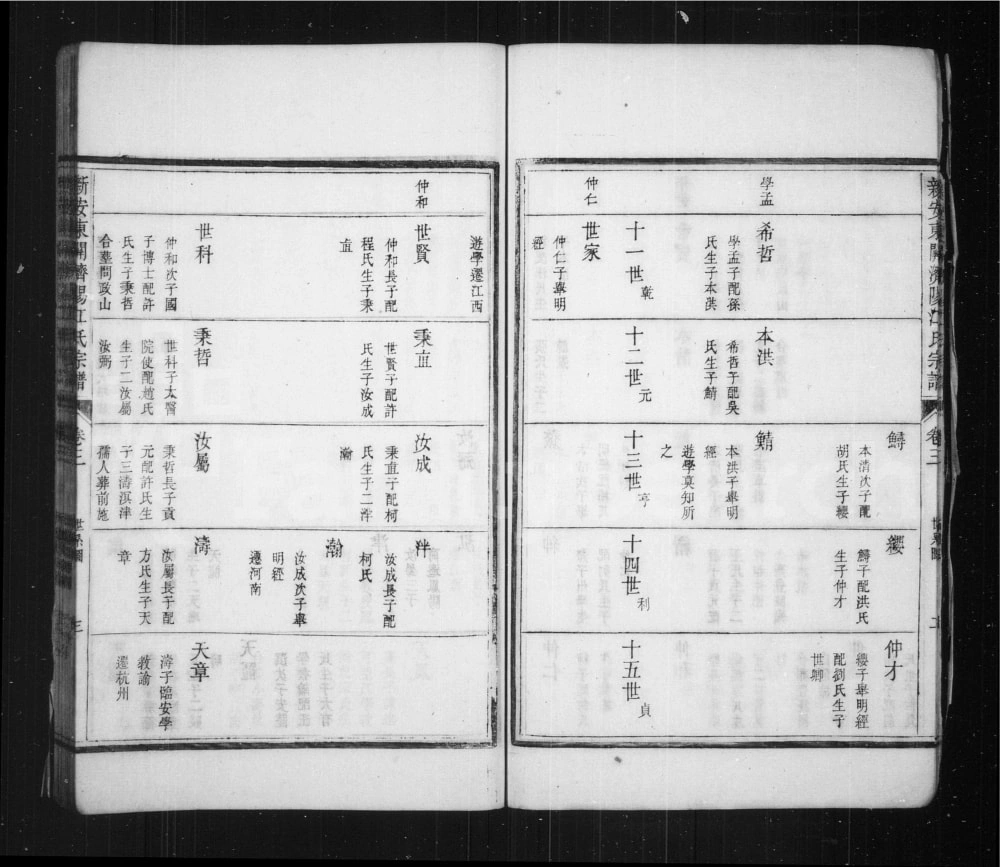 新安東關濟陽江氏宗譜
卷三
世系圖
學孟
仲仁
希哲
學孟子配孫
氏生子本洪
十一世乾
世家
仲仁子舉明
經
本洪
希哲子配吳
氏生子鯖
十二世元
鱘
本清次子配
胡氏生子纓
鯖
本洪子舉明
經
遊學莫知所
之
十三世亨
纓
鱘子配洪氏
生子仲才
十四世利
仲才
纓子舉明經
配劉氏生子
世卿
十五世貞
仲和
遊學遷江西
世賢
仲和長子配
程氏生子秉
直
世科
仲和次子國
子博士配許
氏生子秉哲
合墓問政山
秉直
世賢子配許
氏生子汝成
秉哲
世科子太醫
院使配趙氏
生子二汝屬
汝弼
汝成
秉直子配柯
氏生子二泮
瀚
汝屬
秉哲長子貢
元配許氏生
子三濤淇津
孺人葬前施
泮
汝成長子配
柯氏
瀚
汝成次子舉
明經
遷河南
濤
汝屬長子配
方氏生子天
章
天章
濤子臨安學
教諭
遷杭州
新安東關濟陽江氏宗譜
卷三
世系圖
三